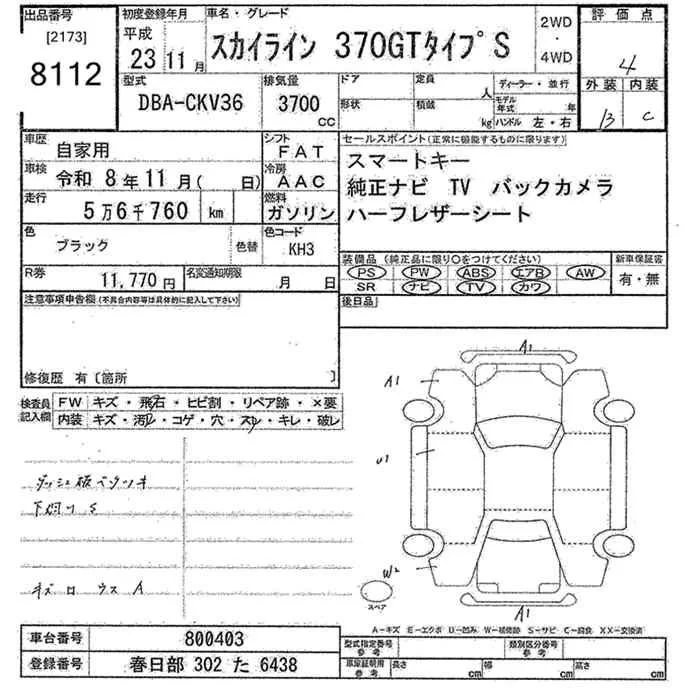 出品番号
[2173]
8112
初度登録年月
平成
23年11月
車名・グレード
スカイライン 370GTタイプS
2WD
・
4WD
評価点
4
外装 内装
B C
型式
DBA-CKV36
排気量
3700
CC
ドア
形状
定員
人
積載
kg
ディーラー・並行
モデル年式 年
ハンドル 左・右
車歴
自家用
シフト
FAT
車検
令和 8年11月( 日)
冷房
AAC
走行
5万6千760 km
燃料
ガソリン
色
ブラック
色替
色コード
KH3
R券
11,770円
名変通知期限
月 日
セールスポイント(正常に機能するものに限ります)
スマートキー
純正ナビ TV バックカメラ
ハーフレザーシート
装備品(純正品に限り○をつけてください)
PS PW ABS エアB AW
SR ナビ TV カワ
新車保証書
有・無
後日品
注意事項申告欄(不具合内容等は具体的に記入して下さい)
修復歴 有〔箇所 〕
検査員記入欄
FW キズ・飛石・ヒビ割・リペア跡・×要
内装 キズ・汚レ・コゲ・穴・スレ・キレ・破レ
ダッシュ板ベタツキ
下回りS
A1
A1
U1
W2
A1
スペア
A-キズ E-エクボ U-凹み W-補修跡 S-サビ C-腐食 XX-交換済
車台番号
800403
登録番号
春日部 302 た 6438
型式指定番号
参考
類別区分番号
参考
車庫証明用
参考
長さ cm
幅 cm
高さ cm